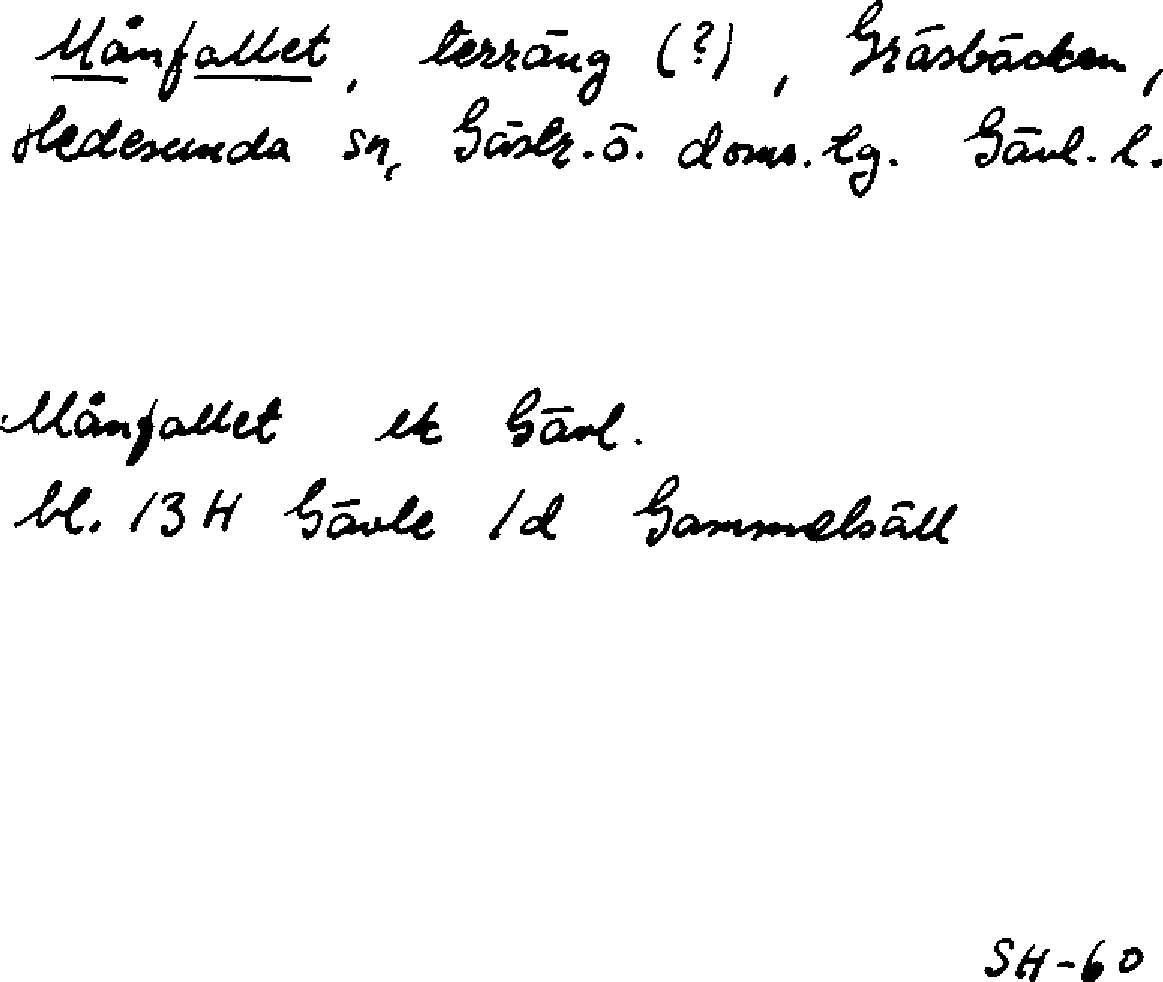 Månfallet, terräng (?), Gräsbäcken,
Hedesunda sn, Gästr. ö. doms. tg. Gävl. l.
Månfallet ek Gävl.
bl. 13 H Gävle 1d Gammelsäll
SH-60